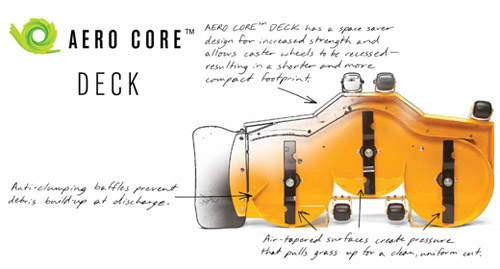 AERO CORE™
DECK
AERO CORE™ DECK has a space saver
design for increased strength and
allows caster wheels to be recessed—
resulting in a shorter and more
compact footprint.
Anti-clumping baffles prevent
debris build-up at discharge.
Air-tapered surfaces create pressure
that pulls grass up for a clean, uniform cut.